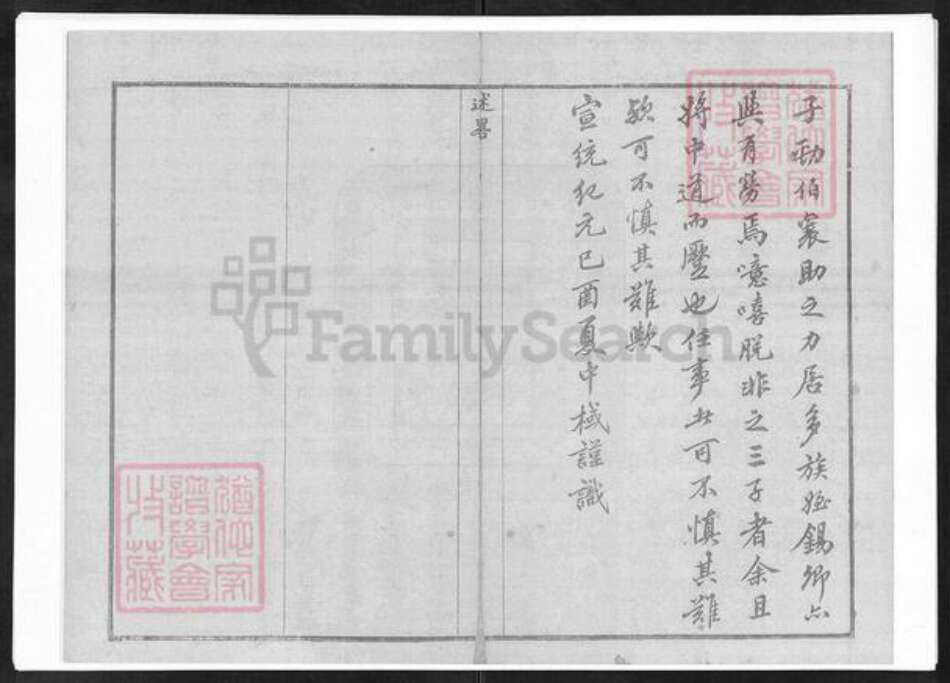 子勁伯裳助之力居多族姪錫卿亦
與有勞焉噫嘻脫非之三子者余且
將中道而壓也往事如可不慎其難
歟可不慎其難歟
宣統紀元己酉夏中棫謹識
述畧
譜學會
收藏
譜學會
收藏
FamilySearch